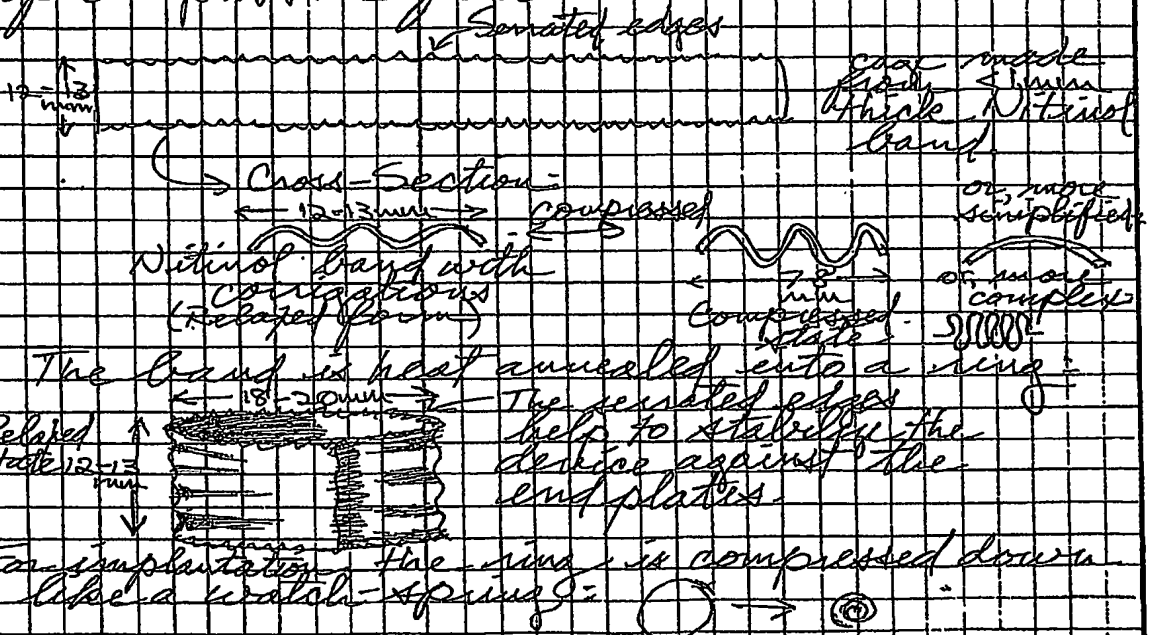 Serrated edges
12-13
mm
can made
from <1mm
thick Nitinol
band.
Cross-Section:
12-13mm
compressed
or, more
simplified:
Nitinol band with
corrigations
(Relaxed form)
7-8
mm
Compressed
state
or, more
complex
The band is heat annealed into a ring:
18-20mm
The serrated edges
help to stabilize the
device against the
endplates.
Relaxed
state 12-13
mm
For implantation, the ring is compressed down
like a watch-spring: